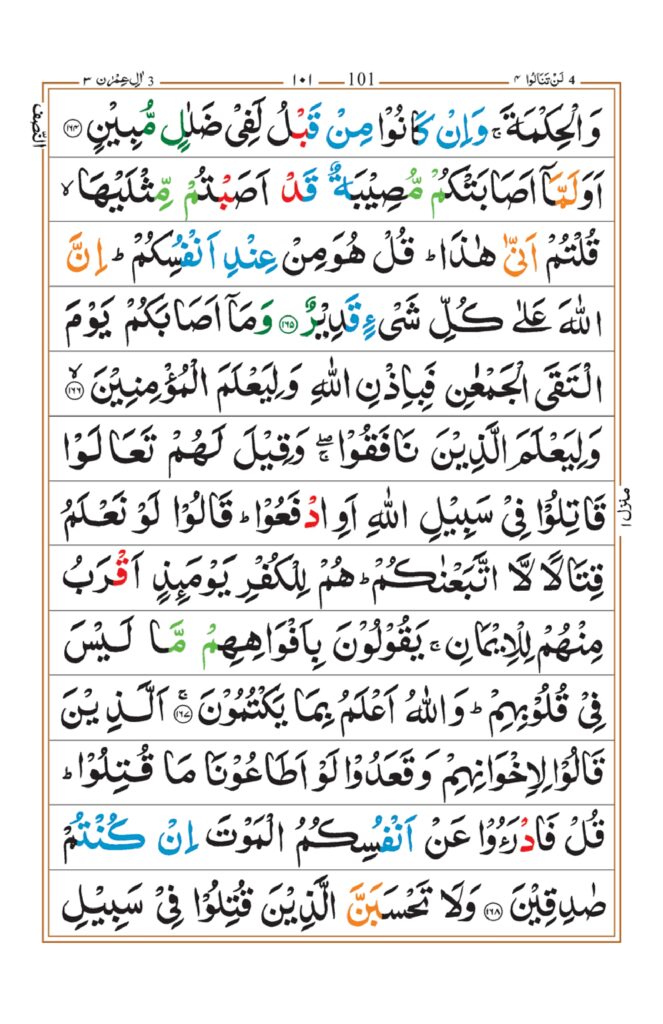 لَنْ تَنَالُوْا ٤ 4 101 ١٠١ 3 اٰلِ عِمْرٰن ٣
النّصف
وَالْحِكْمَةَ ۚ وَاِنْ كَانُوْا مِنْ قَبْلُ لَفِیْ ضَلٰلٍ مُّبِیْنٍ ﴿۱۶۴﴾
اَوَلَمَّاۤ اَصَابَتْكُمْ مُّصِیْبَةٌ قَدْ اَصَبْتُمْ مِّثْلَیْهَا ۙ
قُلْتُمْ اَنّٰی هٰذَا ؕ قُلْ هُوَ مِنْ عِنْدِ اَنْفُسِكُمْ ؕ اِنَّ
اللّٰهَ عَلٰی كُلِّ شَیْءٍ قَدِیْرٌ ﴿۱۶۵﴾ وَمَاۤ اَصَابَكُمْ یَوْمَ
الْتَقَی الْجَمْعٰنِ فَبِاِذْنِ اللّٰهِ وَلِیَعْلَمَ الْمُؤْمِنِیْنَ ﴿۱۶۶﴾ ۙ
وَلِیَعْلَمَ الَّذِیْنَ نَافَقُوْا ۖۚ وَقِیْلَ لَهُمْ تَعَالَوْا
قَاتِلُوْا فِیْ سَبِیْلِ اللّٰهِ اَوِ ادْفَعُوْا ؕ قَالُوْا لَوْ نَعْلَمُ
منزل ۱
قِتَالًا لَّا اتَّبَعْنٰكُمْ ؕ هُمْ لِلْكُفْرِ یَوْمَىِٕذٍ اَقْرَبُ
مِنْهُمْ لِلْاِیْمَانِ ۚ یَقُوْلُوْنَ بِاَفْوَاهِهِمْ مَّا لَیْسَ
فِیْ قُلُوْبِهِمْ ؕ وَاللّٰهُ اَعْلَمُ بِمَا یَكْتُمُوْنَ ﴿۱۶۷﴾ ۚ اَلَّذِیْنَ
قَالُوْا لِاِخْوَانِهِمْ وَقَعَدُوْا لَوْ اَطَاعُوْنَا مَا قُتِلُوْا ؕ
قُلْ فَادْرَءُوْا عَنْ اَنْفُسِكُمُ الْمَوْتَ اِنْ كُنْتُمْ
صٰدِقِیْنَ ﴿۱۶۸﴾ وَلَا تَحْسَبَنَّ الَّذِیْنَ قُتِلُوْا فِیْ سَبِیْلِ